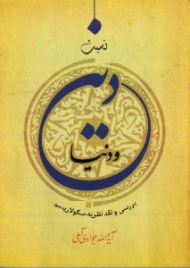 نسبت
دین
و دنیا
بررسی و نقد نظریه سکولاریسم
آیة الله جوادی آملی